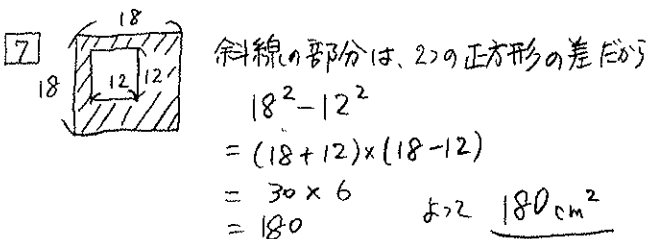 7
18
18
12
12
斜線の部分は、2つの正方形の差だから
18²-12²
= (18+12)×(18-12)
= 30×6
= 180
よって 180cm²